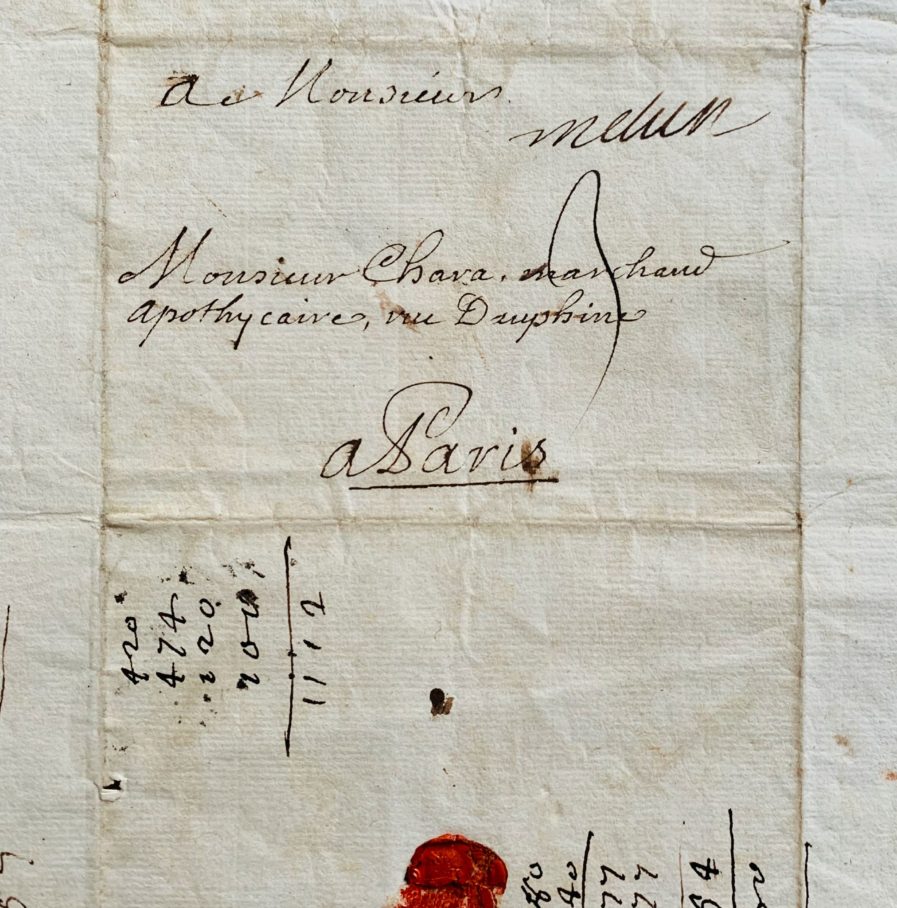 A Monsieur
melun
Monsieur Chara, marchand
apothycaire, rue Dauphine
a Paris
420
474
220
1112
80
40
77
77
84